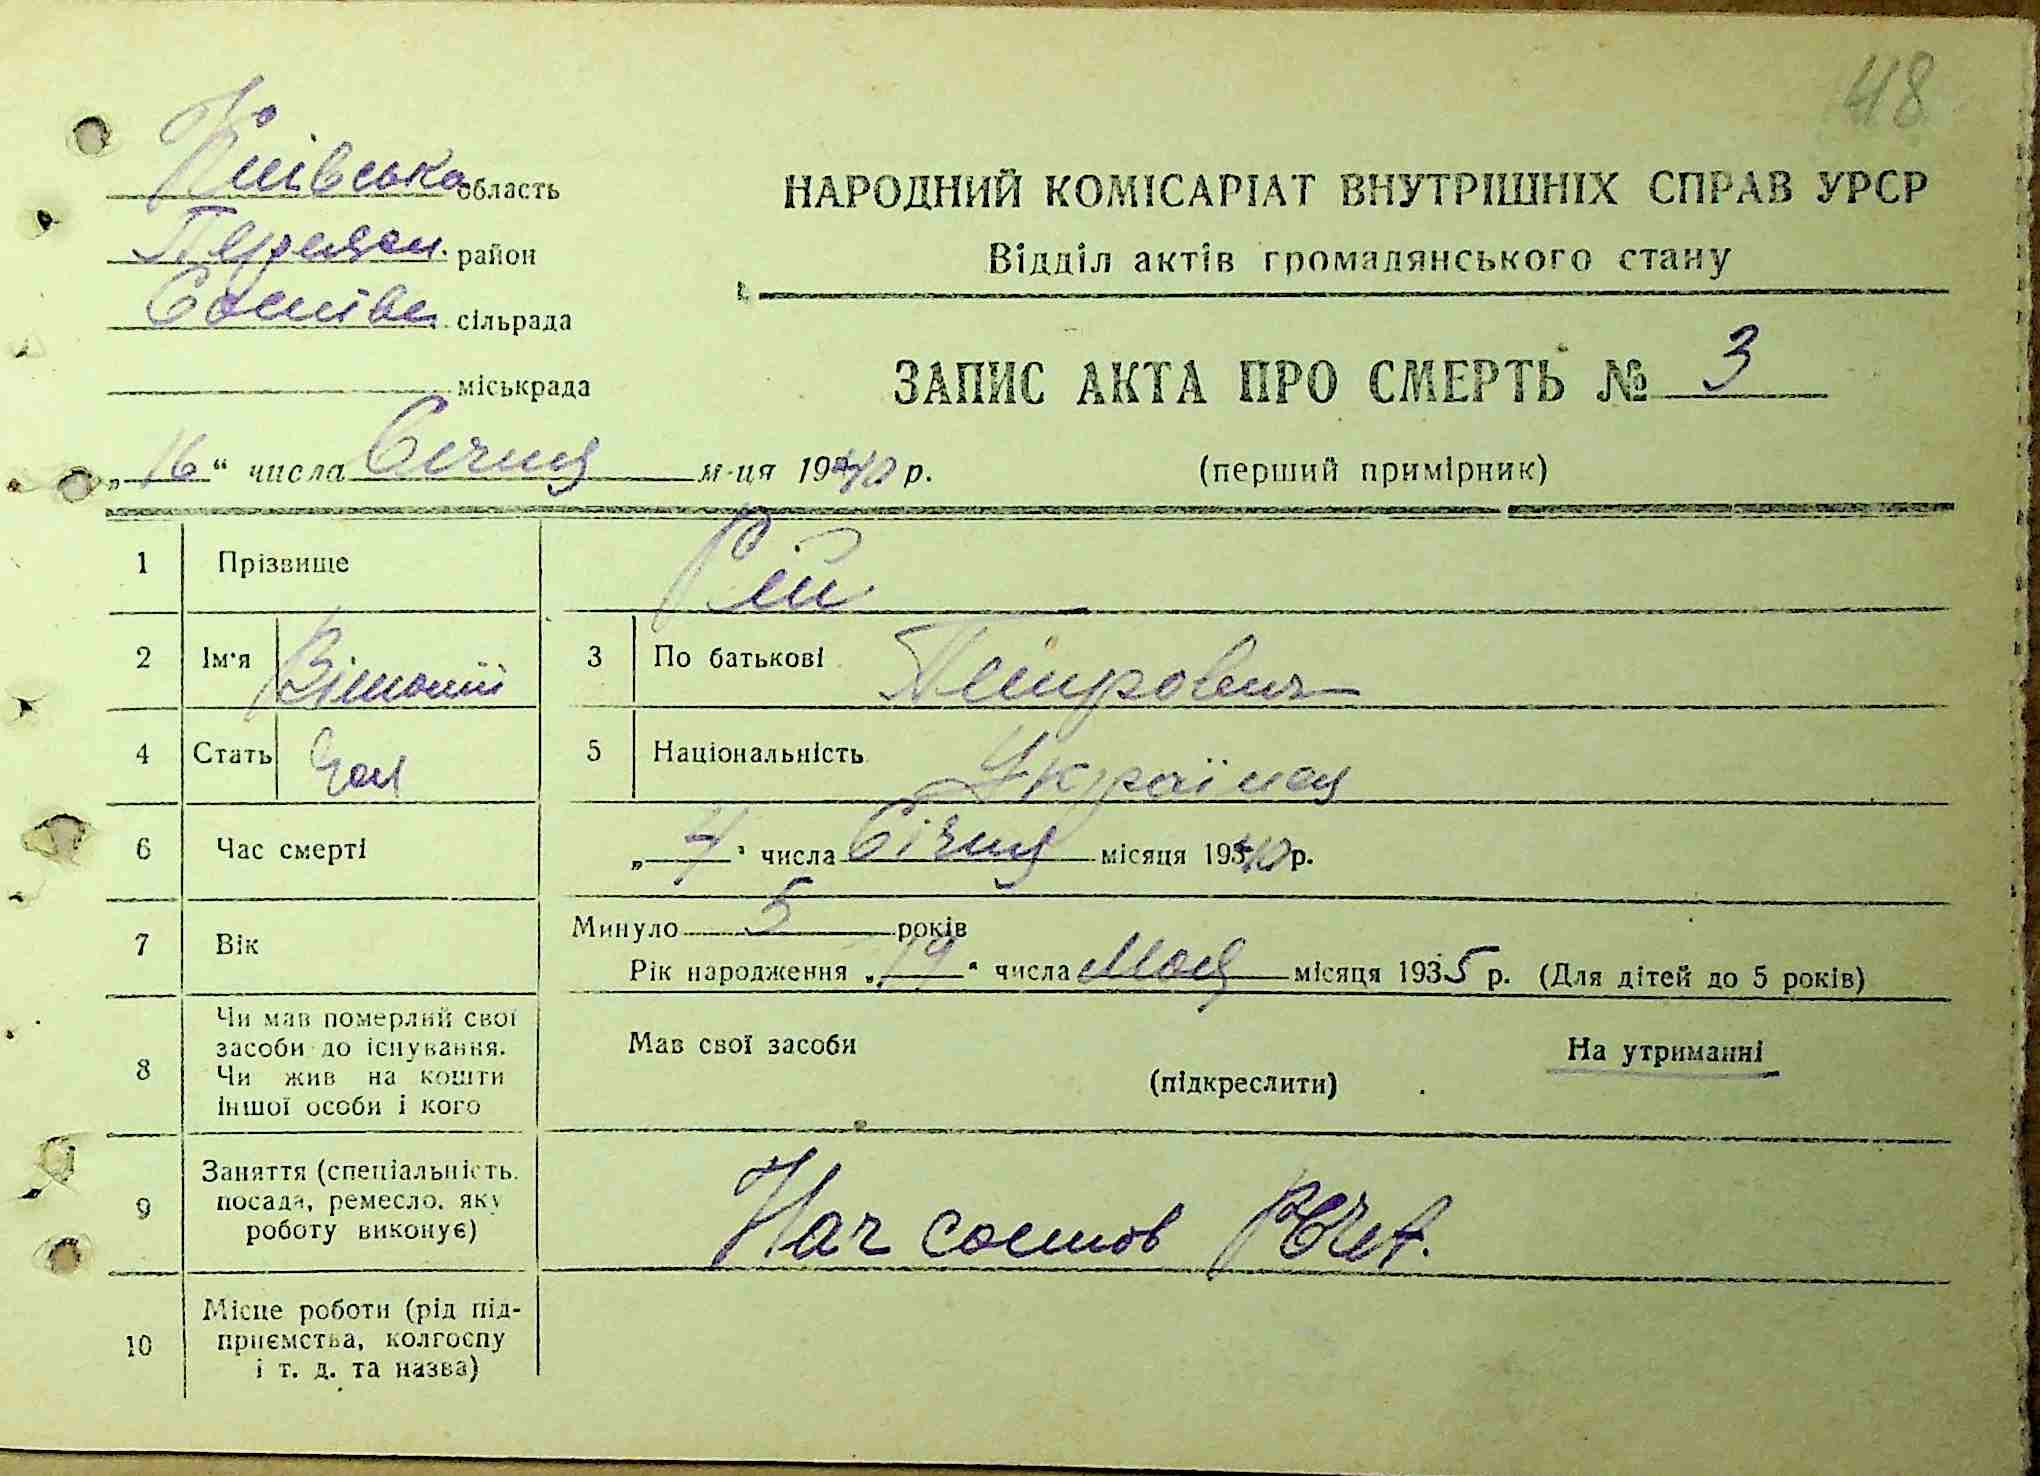 48
Київська область
Переясл. район
Сомків. сільрада
міськрада
НАРОДНИЙ КОМІСАРІАТ ВНУТРІШНІХ СПРАВ УРСР
Відділ актів громадянського стану
ЗАПИС АКТА ПРО СМЕРТЬ № 3
„16" числа Січня м-ця 1940 р.
(перший примірник)
1 Прізвище Рій
2 Ім'я Віталій 3 По батькові Петрович
4 Стать Чол 5 Національність Україн
6 Час смерті „4" числа Січня місяця 1940 р.
7 Вік Минуло 5 років
Рік народження „19" числа Мая місяця 1935 р. (Для дітей до 5 років)
8 Чи мав померлий свої засоби до існування. Чи жив на кошти іншої особи і кого
Мав свої засоби На утриманні
(підкреслити)
9 Заняття (спеціальність, посада, ремесло, яку роботу виконує)
Нач состов
10 Місце роботи (рід підприємства, колгоспу і т. д. та назва)